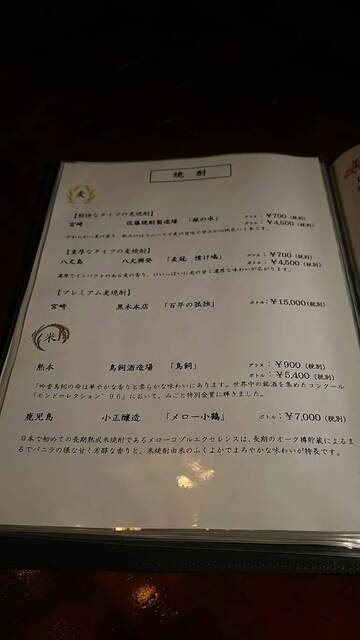 焼酎
麦
【軽快なタイプの麦焼酎】
宮崎 佐藤焼酎製造場 「銀の水」 グラス：￥700（税別）
ボトル：￥4,500（税別）
【重厚なタイプの麦焼酎】
八丈島 八丈興発 「麦冠 情け嶋」 グラス：￥700（税別）
ボトル：￥4,500（税別）
濃厚でインパクトのある麦の香り、口いっぱいに麦の甘く濃厚な味わいが広がります。
【プレミアム麦焼酎】
宮崎 黒木本店 「百年の孤独」 ボトル：￥15,000（税別）
米
熊本 鳥飼酒造場 「鳥飼」 グラス：￥900（税別）
ボトル：￥5,400（税別）
「吟香鳥飼の命は華やかな香りと柔らかな味わいにあります。世界中の銘酒を集めたコンクール
「モンドセレクション’96」において、みごと特別金賞に輝きました。
鹿児島 小正醸造 「メロー小鶴」 ボトル：￥7,000（税別）
日本で初めての長期熟成米焼酎であるメローコヅルエクセレンスは、長期のオーク樽貯蔵によるま
るでバニラの様な甘く芳醇な香りと、米焼酎由来のふくよかでまろやかな味わいが特長です。